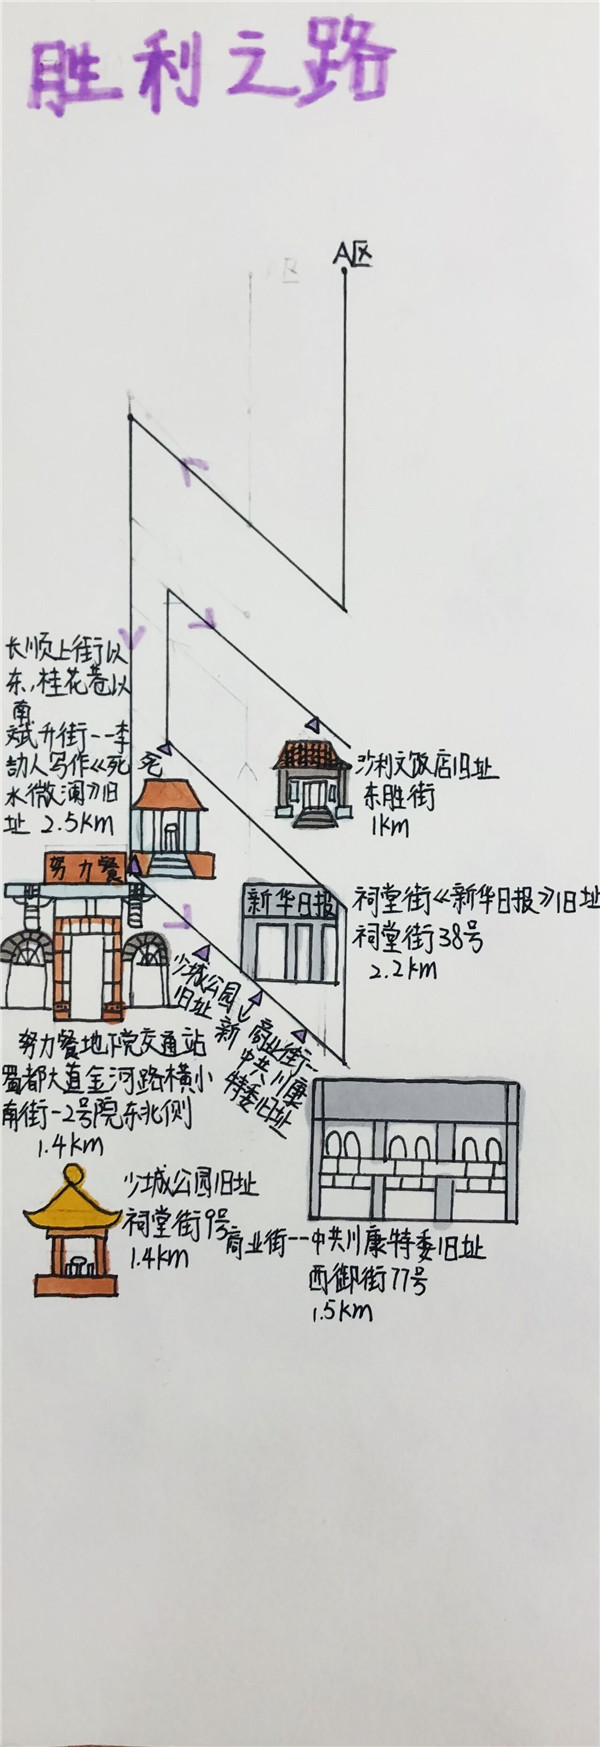 胜利之路
A区
长顺上街以
东,桂花巷以
南
斌升街--李
劼人写作《死
水微澜》旧
址 2.5km
死
沙利文饭店旧址
东胜街
1km
努力餐
新华日报
祠堂街《新华日报》旧址
祠堂街38号
2.2km
少城公园
旧址
新
商业街--
中共川康
特委旧址
努力餐地下党交通站
蜀都大道金河路横小
南街-2号院东北侧
1.4km
少城公园旧址
祠堂街9号
1.4km
商业街--中共川康特委旧址
西御街77号
1.5km